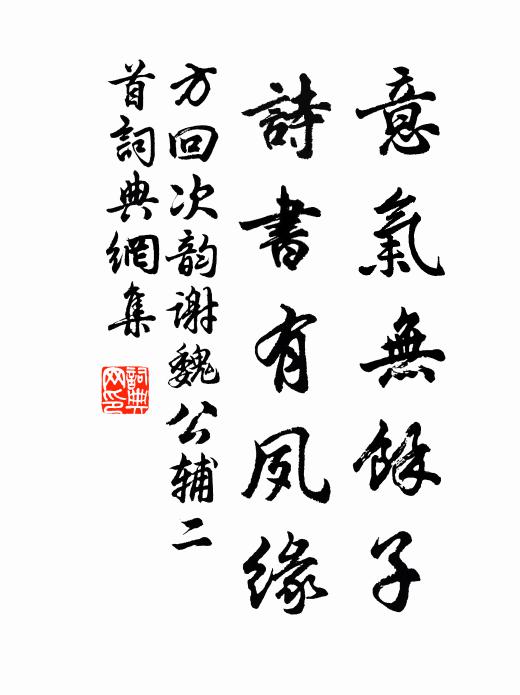 意氣無餘子
詩書有夙緣
方回次韵谢魏公辅二
首詞典網集
詞典
网印